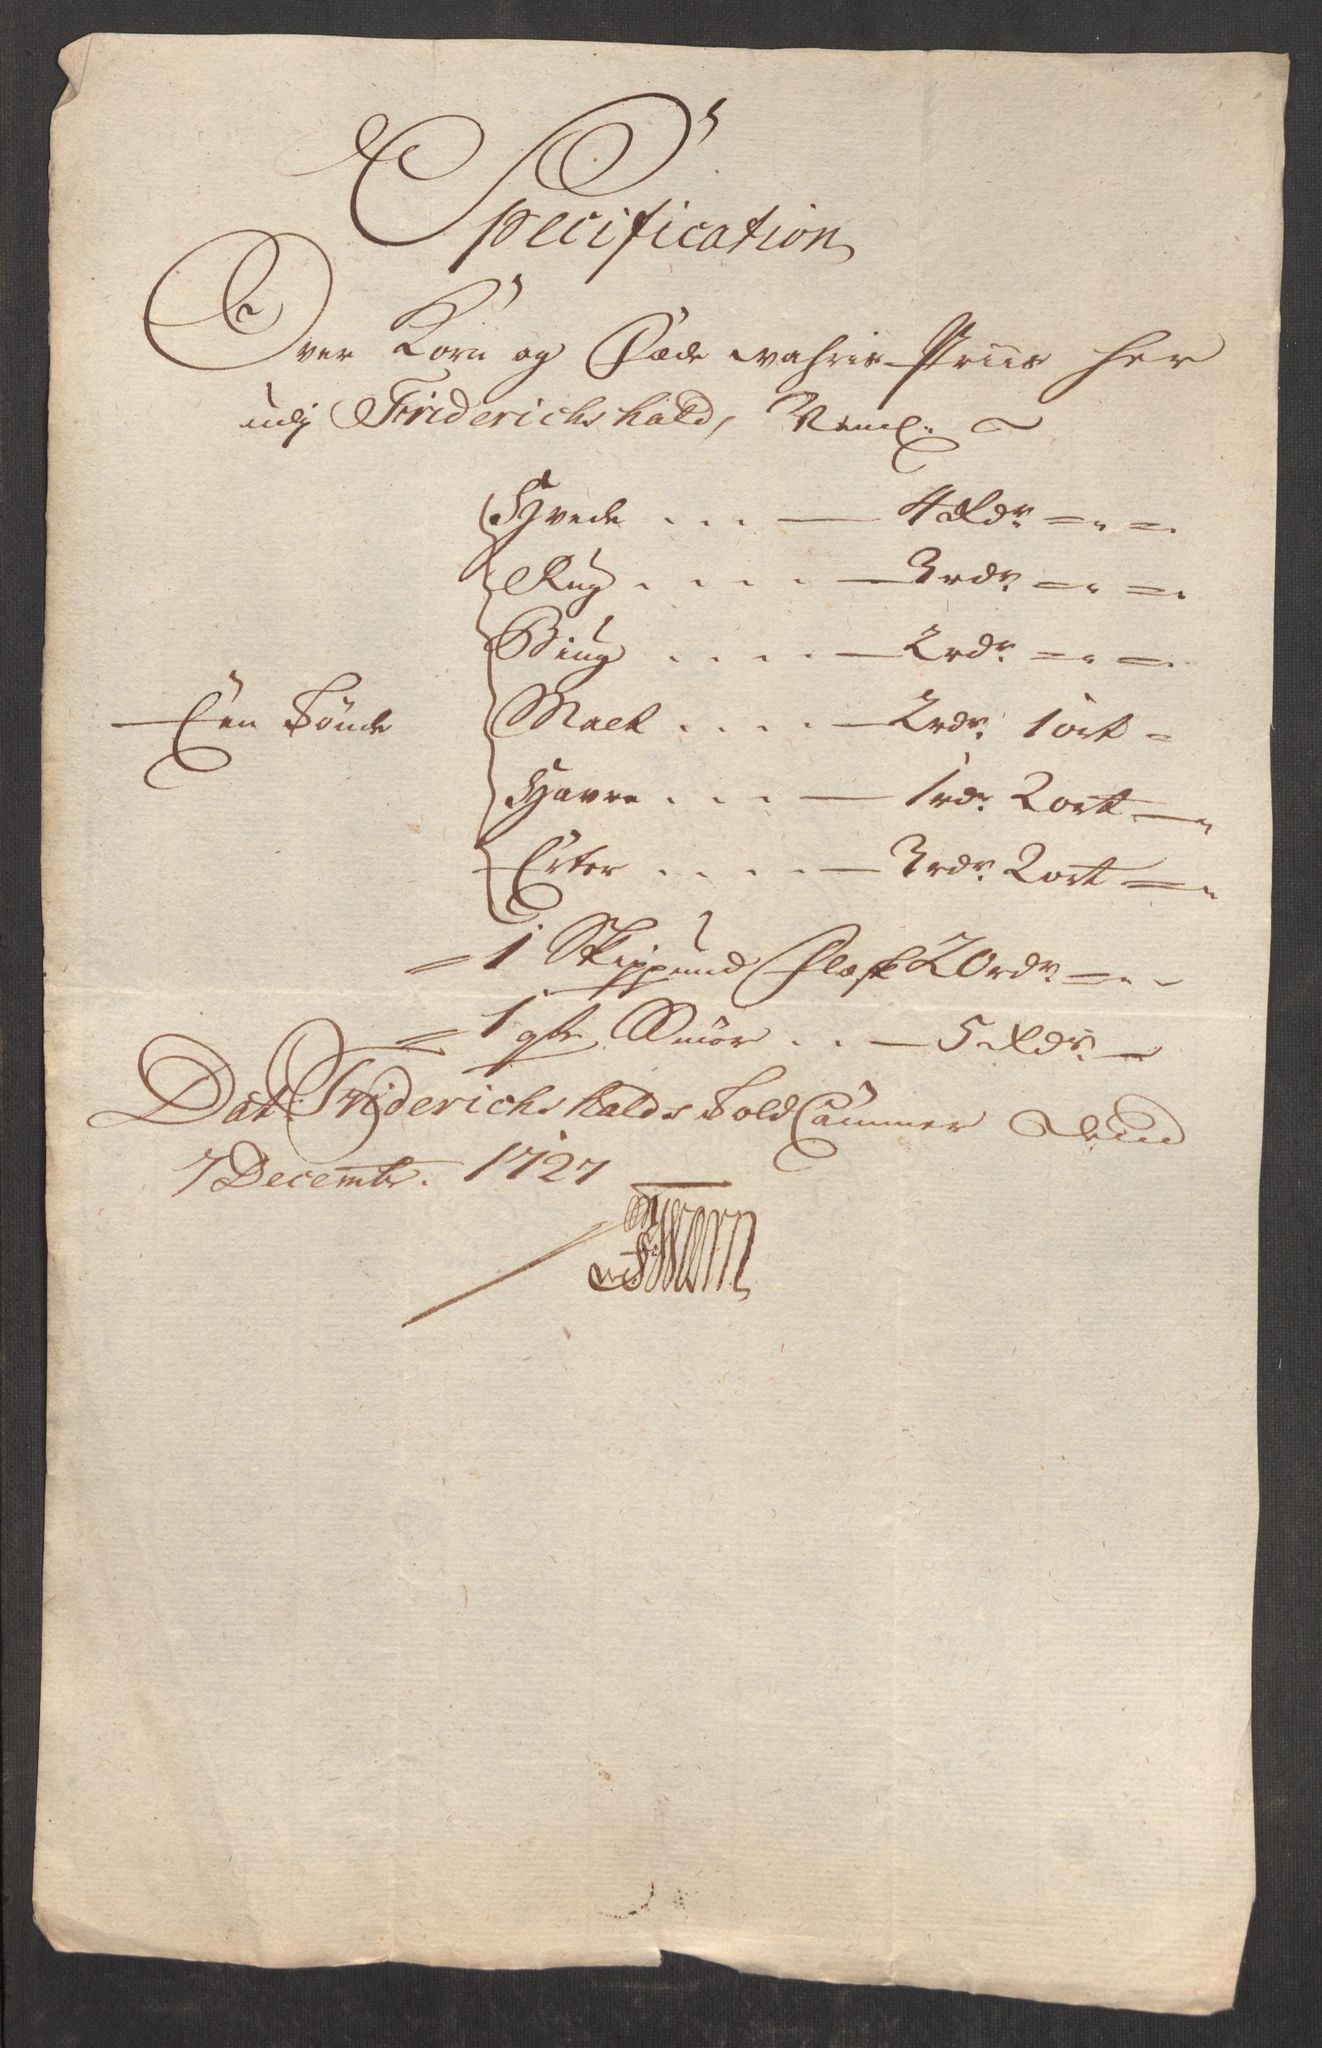 Specification
Over Korn og Føde wahris Priis her
udj Friderichshald, Neml:
Hvede . . . — 4 Rdr = " =
Rug . . . . — 3 rdr = " = "
Biug . . . . — 2 rdr = " =
Een Tønde Malt . . . . — 2 rdr 1 ort =
Havre . . . — 1 rdr 2 ort — "
Erter . . . . — 3 rdr 2 ort — "
= 1 Skippund Flæsk 20 rdr = " -
= 1 Smør . . — 5 Rdr —
Dat. Friderichshalds Told Cammer Dend
7 Decembr. 1727